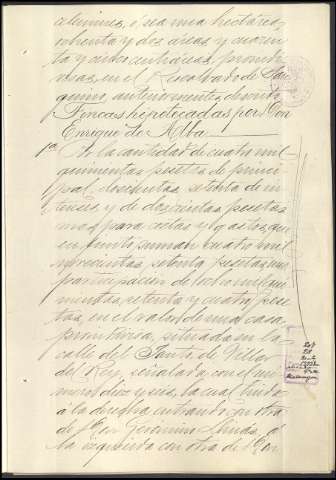 celemines, ó sea una hectárea
ochenta y dos áreas y cuaren-
ta y cinco centiáreas,
en el de
anteriormente
Fincas hipotecadas por Don
Enrique de Alba
1ª A la cantidad de cuatro mil
quinientas pesetas de princi-
pal, doscientas setenta de in-
tereses, y de doscientas pesetas
mas para costas y gastos, que
en junto, suman cuatro mil
novecientas setenta pesetas, una
participacion de ocho mil qui-
nientas, setenta y cuatro pese-
tas, en el valor de una casa
situada en la
calle del de Villar
del Rey, señalada con el nú-
mero diez y seis, la cual linda
a la derecha entrando con otra
de Don Geronimo á
la izquierda con otra de Don